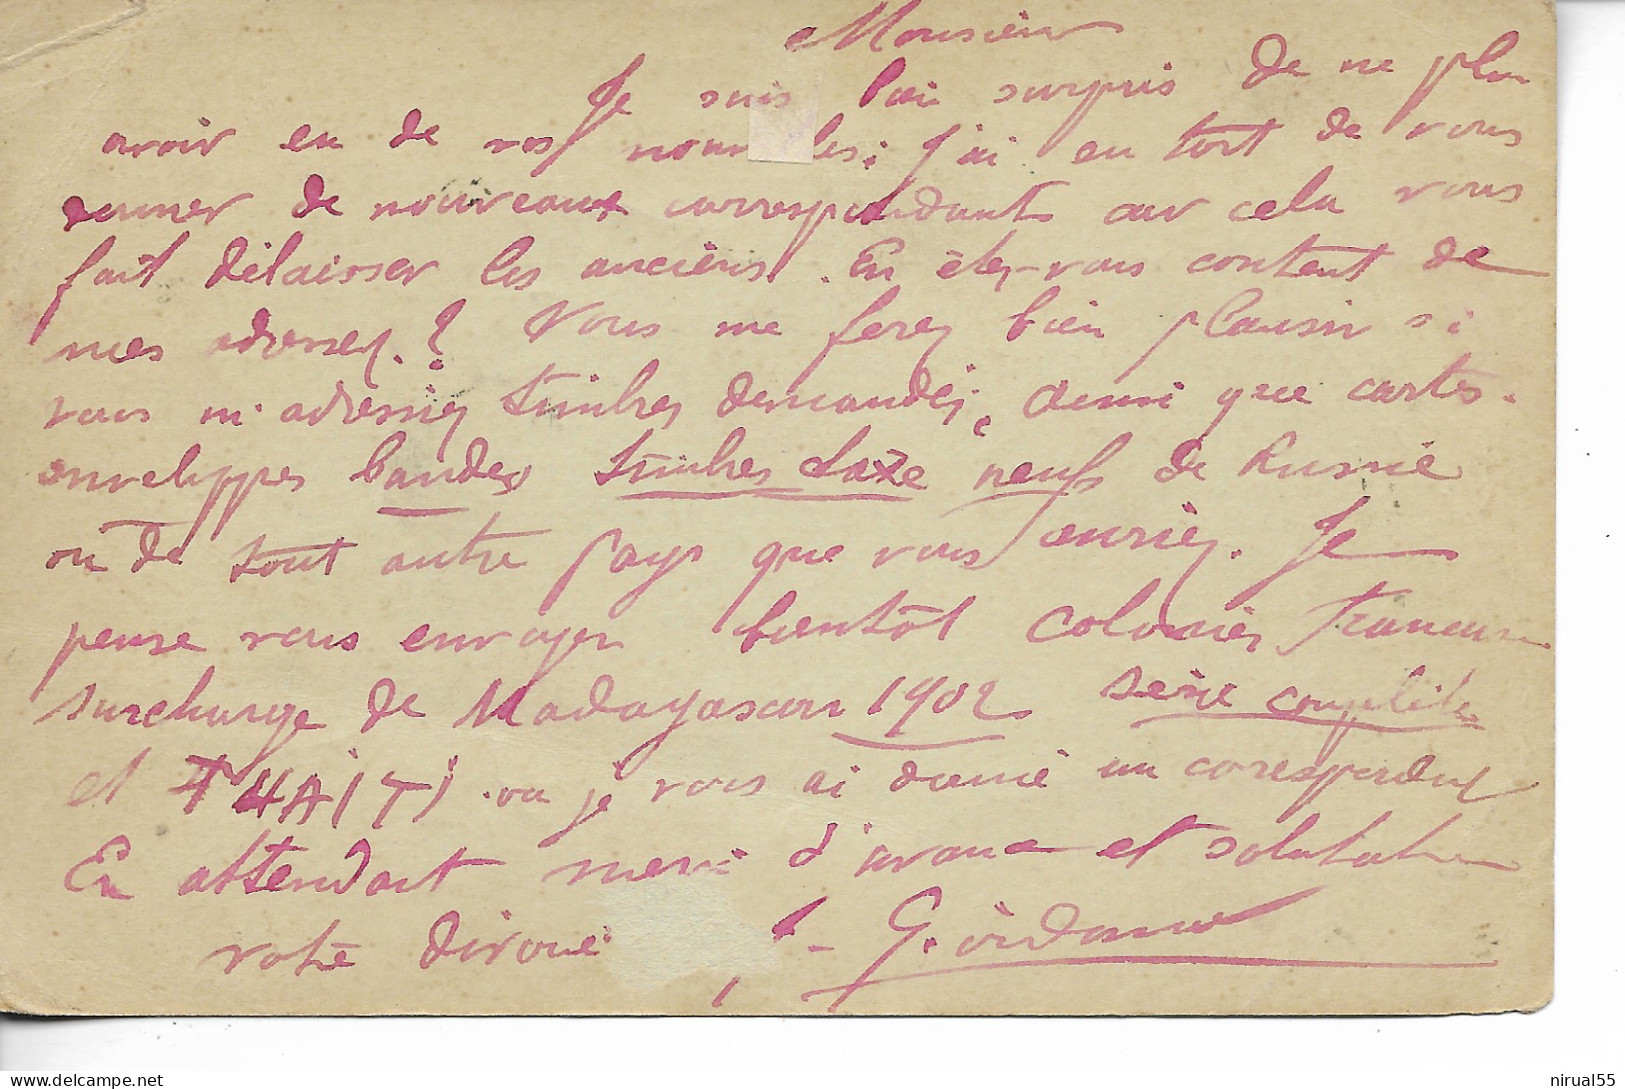 Monsieur
Je suis bien surpris de ne plus
avoir eu de vos nouvelles, j'ai eu tort de vous
donner de nouveaux correspondants car cela vous
fait délaisser les anciens. En êtes-vous content de
mes adresses ? Vous me ferez bien plaisir si
vous m'adressiez timbres demandés, ainsi que cartes-
enveloppes bandes timbres taxe neufs de Russie
ou de tout autre pays que vous auriez. Je
pense vous envoyer bientôt colonies Francaises
surcharge de Madagascar 1902 série complète
et TAHITI où je vous ai donné un correspondant
En attendant merci d'avance et salutations
votre dévoué J. Giordano
nirual55